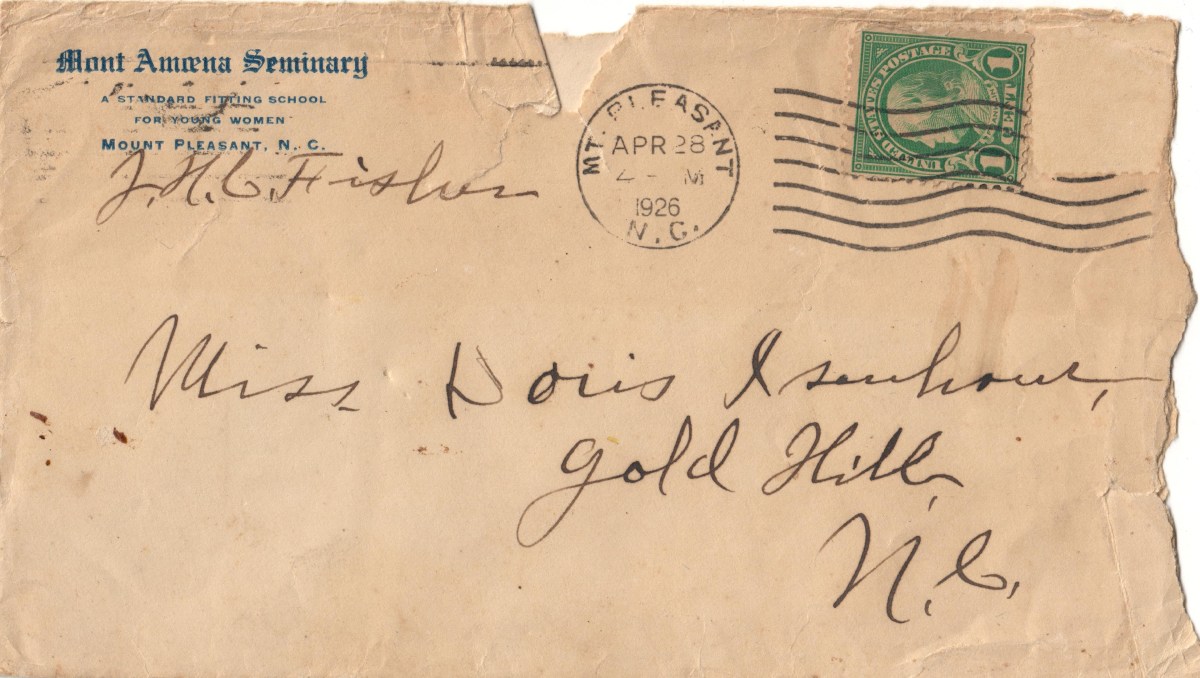 Mont Amœna Seminary
A STANDARD FITTING SCHOOL
FOR YOUNG WOMEN
MOUNT PLEASANT, N. C.
J. H. C. Fisher
MT. PLEASANT
APR 28
4 - M
1926
N. C.
UNITED STATES POSTAGE
1 1
Miss Doris Isenhour,
Gold Hill,
N. C.